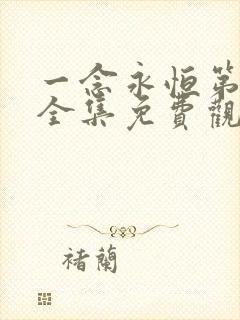 一念永恒第
全集免費觀
褚蘭